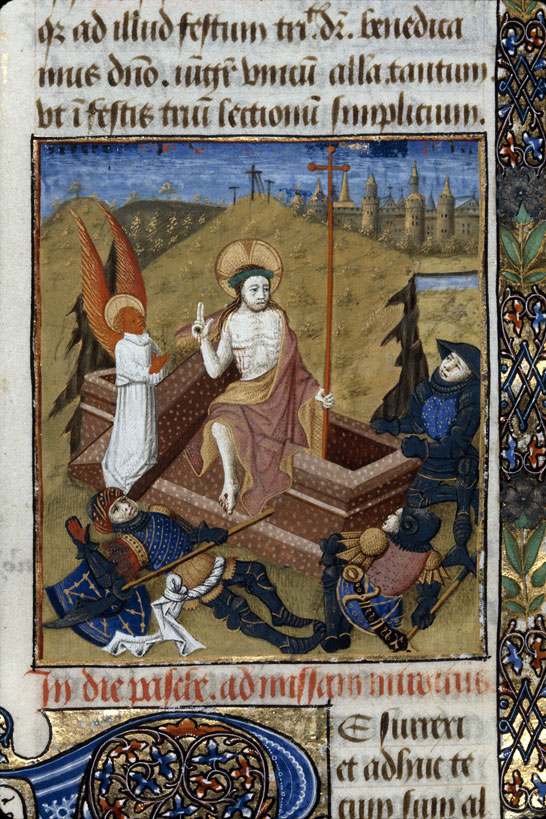 qz ad illud festum trᷤ. dr̄. benedica
mus dn̄o. iungr̄ vnicū alla tantum
vt ī festis triū lectionū simplicium.
In die pasche. ad missam introitus
Esurrexi
et adhuc te
cum sum al